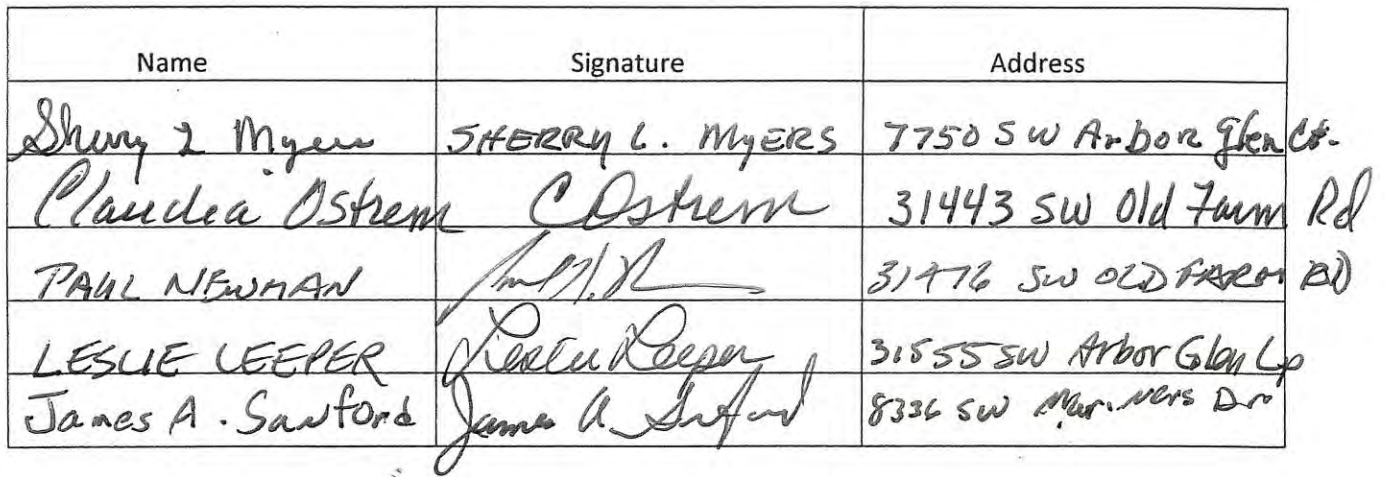 Name Signature Address
Sherry L Myers SHERRY L. MYERS 7750 SW Arbor Glen Ct.
Claudia Ostrem C Ostrem 31443 SW Old Farm Rd
PAUL NEWMAN 31476 SW OLD FARM RD
LESLIE LEEPER Leslie Leeper 31555 SW Arbor Glen Lp
James A. Sanford James A Sanford 8336 SW Mariners Dr